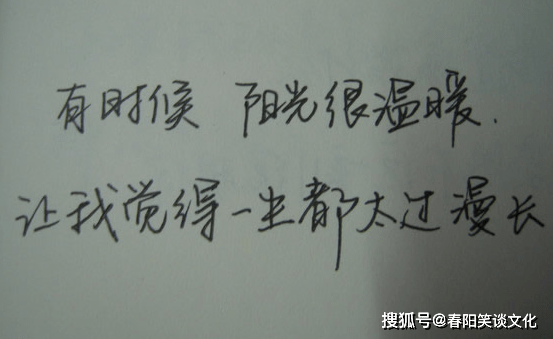 有时候 阳光很温暖.
让我觉得一生都太过漫长
搜狐号@春阳笑谈文化